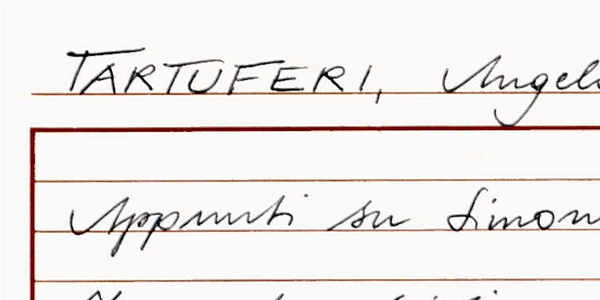 TARTUFERI, Angelo
Appunti su Simon